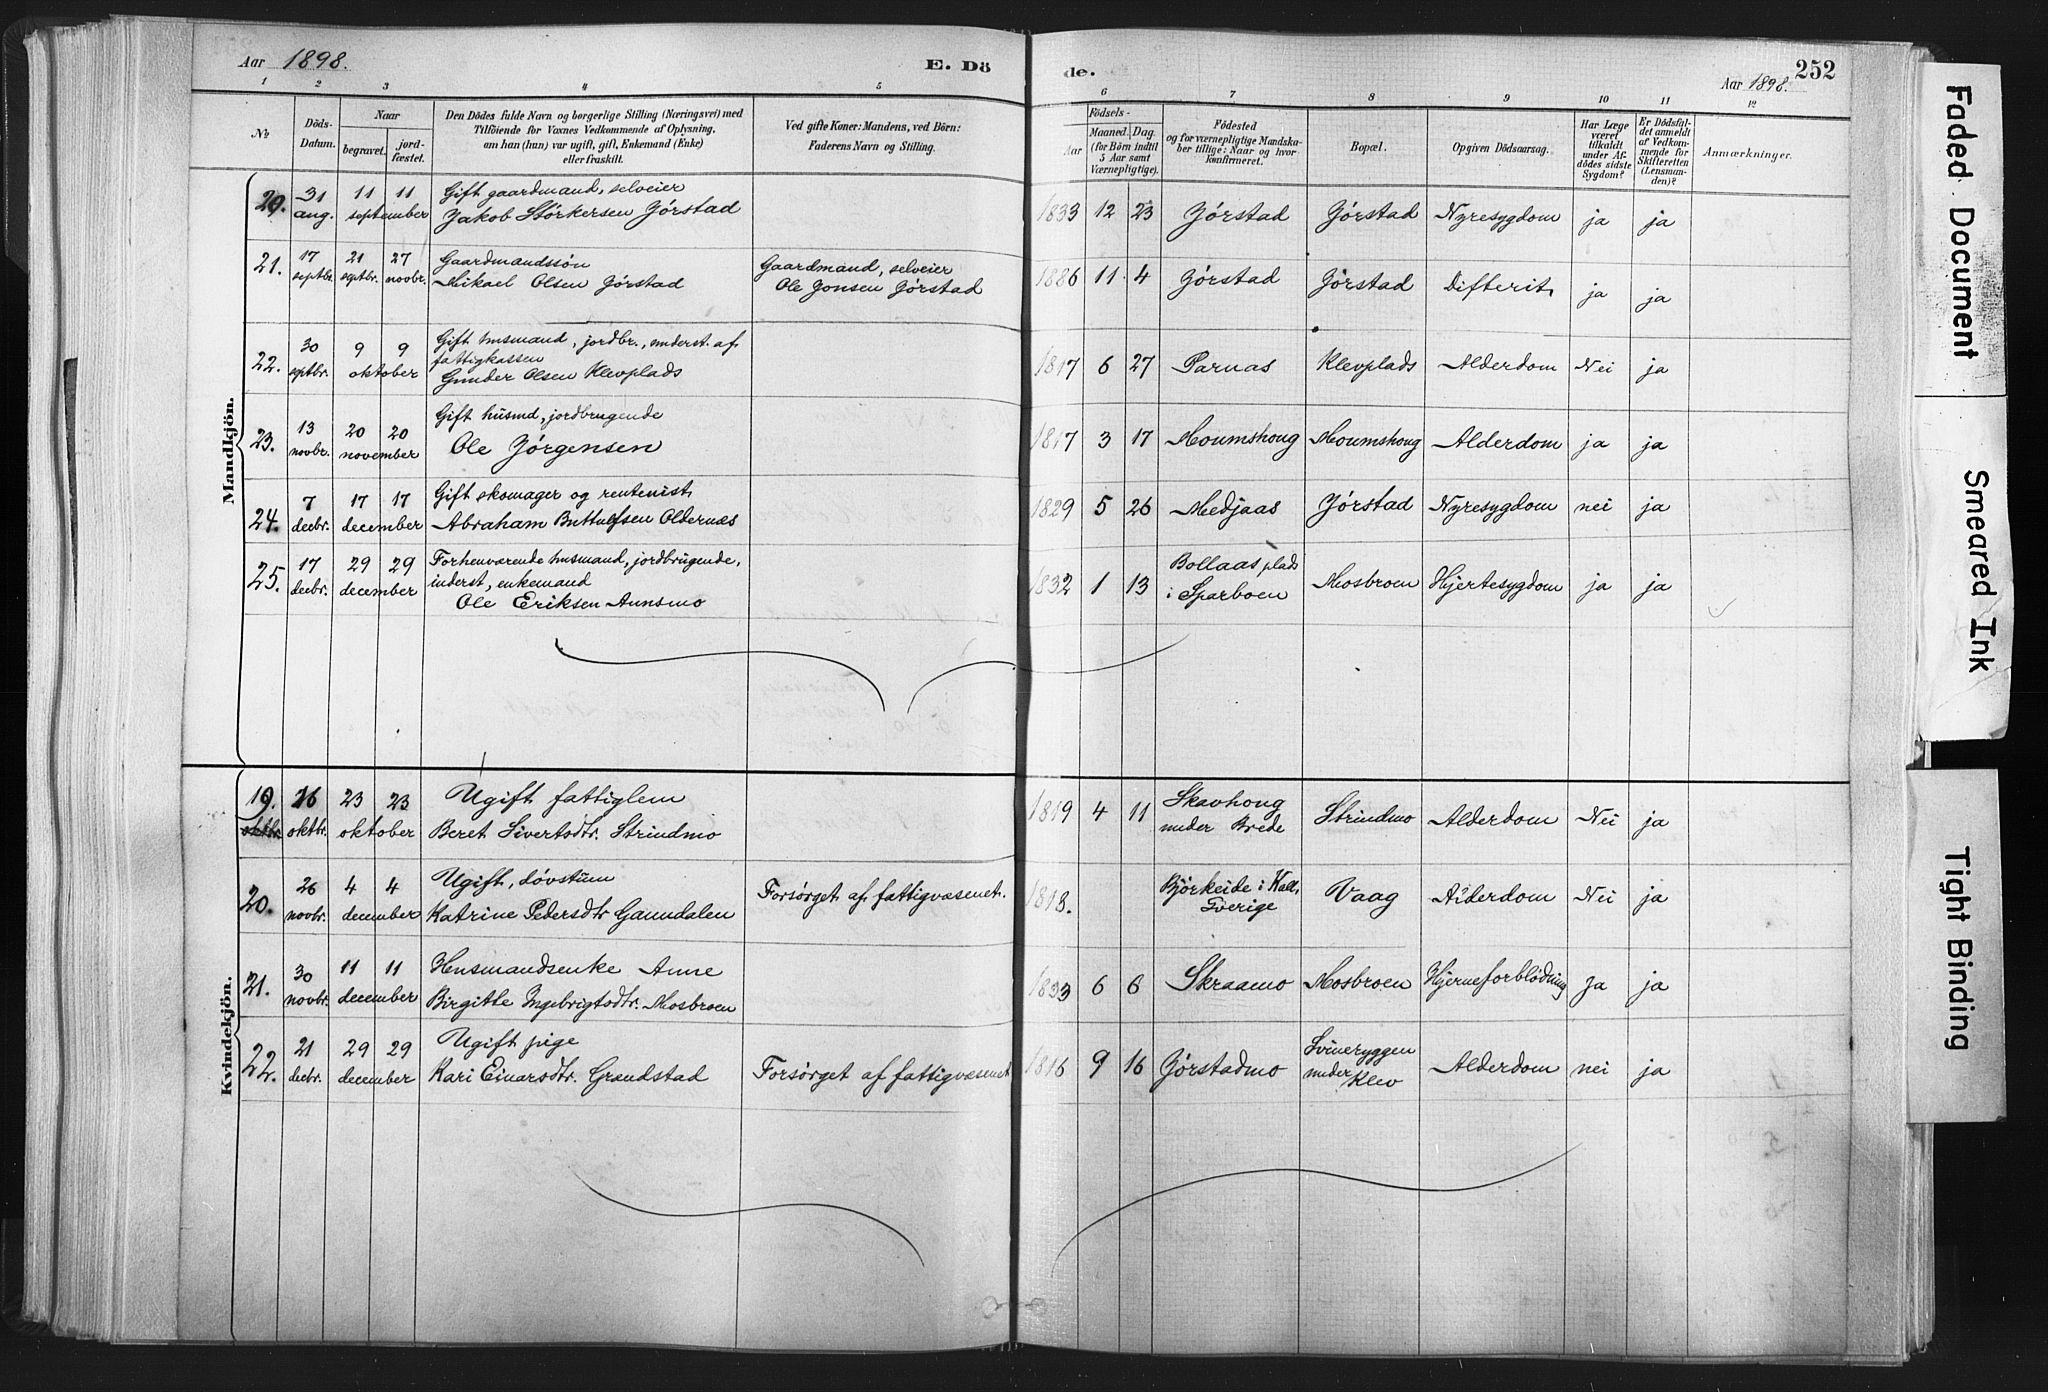 Aar 1898.
E. Dö
de.
252
Aar 1898.
1 2 3 4 5 6 7 8 9 10 11 12
№
Döds-Datum.
Naar
begravet.
jord-fæstet.
Den Dödes fulde Navn og borgerlige Stilling (Næringsvei) med
Tilföiende for Voxnes Vedkommende af Oplysning,
om han (hun) var ugift, gift, Enkemand (Enke)
eller fraskilt.
Ved gifte Koner: Mandens, ved Börn:
Faderens Navn og Stilling.
Födsels-
Aar
Maaned. Dag.
(for Börn indtil
5 Aar samt
Værnepligtige).
Födested
og for værnepligtige Mandska-
ber tillige: Naar og hvor
konfirmeret.
Bopæl.
Opgiven Dödsaarsag.
Har Læge
været
tilkaldt
under Af-
dödes sidste
Sygdom?
Er Dödsfal-
det anmeldt
af Vedkom-
mende for
Skifteretten
(Lensman-
den)?
Anmærkninger.
Mandkjön.
20. 31 aug. 11 11 september
Gift gaardmand, selveier
Jakob Störkersen Jörstad
1833 12 23 Jörstad Jörstad Nyresygdom ja ja
21. 17 septbr. 21 septbr. 27 novbr.
Gaardmandssön
Mikael Olsen Jörstad
Gaardmand, selveier
Ole Jonsen Jörstad
1886 11 4 Jörstad Jörstad Difterit ja ja
22. 30 septbr. 9 9 oktober
Gift husmand, jordbr., underst. af
fattigkassen
Gunder Olsen Klevplads
1817 6 27 Parnas Klevplads Alderdom Nei ja
23. 13 novbr. 20 20 november
Gift husmd, jordbrugende
Ole Jörgensen
1817 3 17 Moumshoug Moumshoug Alderdom ja ja
24. 7 decbr. 17 17 december
Gift skomager og rentenist
Abraham Buttulfsen Oldernæs
1829 5 26 Medjaas Jörstad Nyresygdom nei ja
25. 17 decbr. 29 29 december
Forhenværende husmand, jordbrugende,
inderst, enkemand
Ole Eriksen Aunsmo
1832 1 13 Bollaas plads
i Sparboen
Mosbroen Hjertesygdom ja ja
Kvindekjön.
19. 16 oktbr. 23 23 oktober
Ugift fattiglem
Beret Sivertsdtr. Strindmo
1819 4 11 Skavhoug
under Brede
Strindmo Alderdom Nei ja
20. 26 novbr. 4 4 december
Ugift, dövstum
Katrine Pedersdtr Gaundalen
Forsörget af fattigvæsenet.
1818. Björkeide i Kall,
Sverige
Vaag Alderdom Nei ja
21. 30 novbr. 11 11 december
Husmandsenke Anne
Birgitte Ingebrigtsdtr. Mosbroen
1833 6 6 Skraamo Mosbroen Hjerneforblödning Ja ja
22. 21 decbr. 29 29 december
Ugift pige
Kari Einarsdtr. Grandstad
Forsörget af fattigvæsenet
1816 9 16 Jörstadmo
Svineryggen
under Klev
Alderdom nei ja
Faded Document
Smeared Ink
Tight Binding